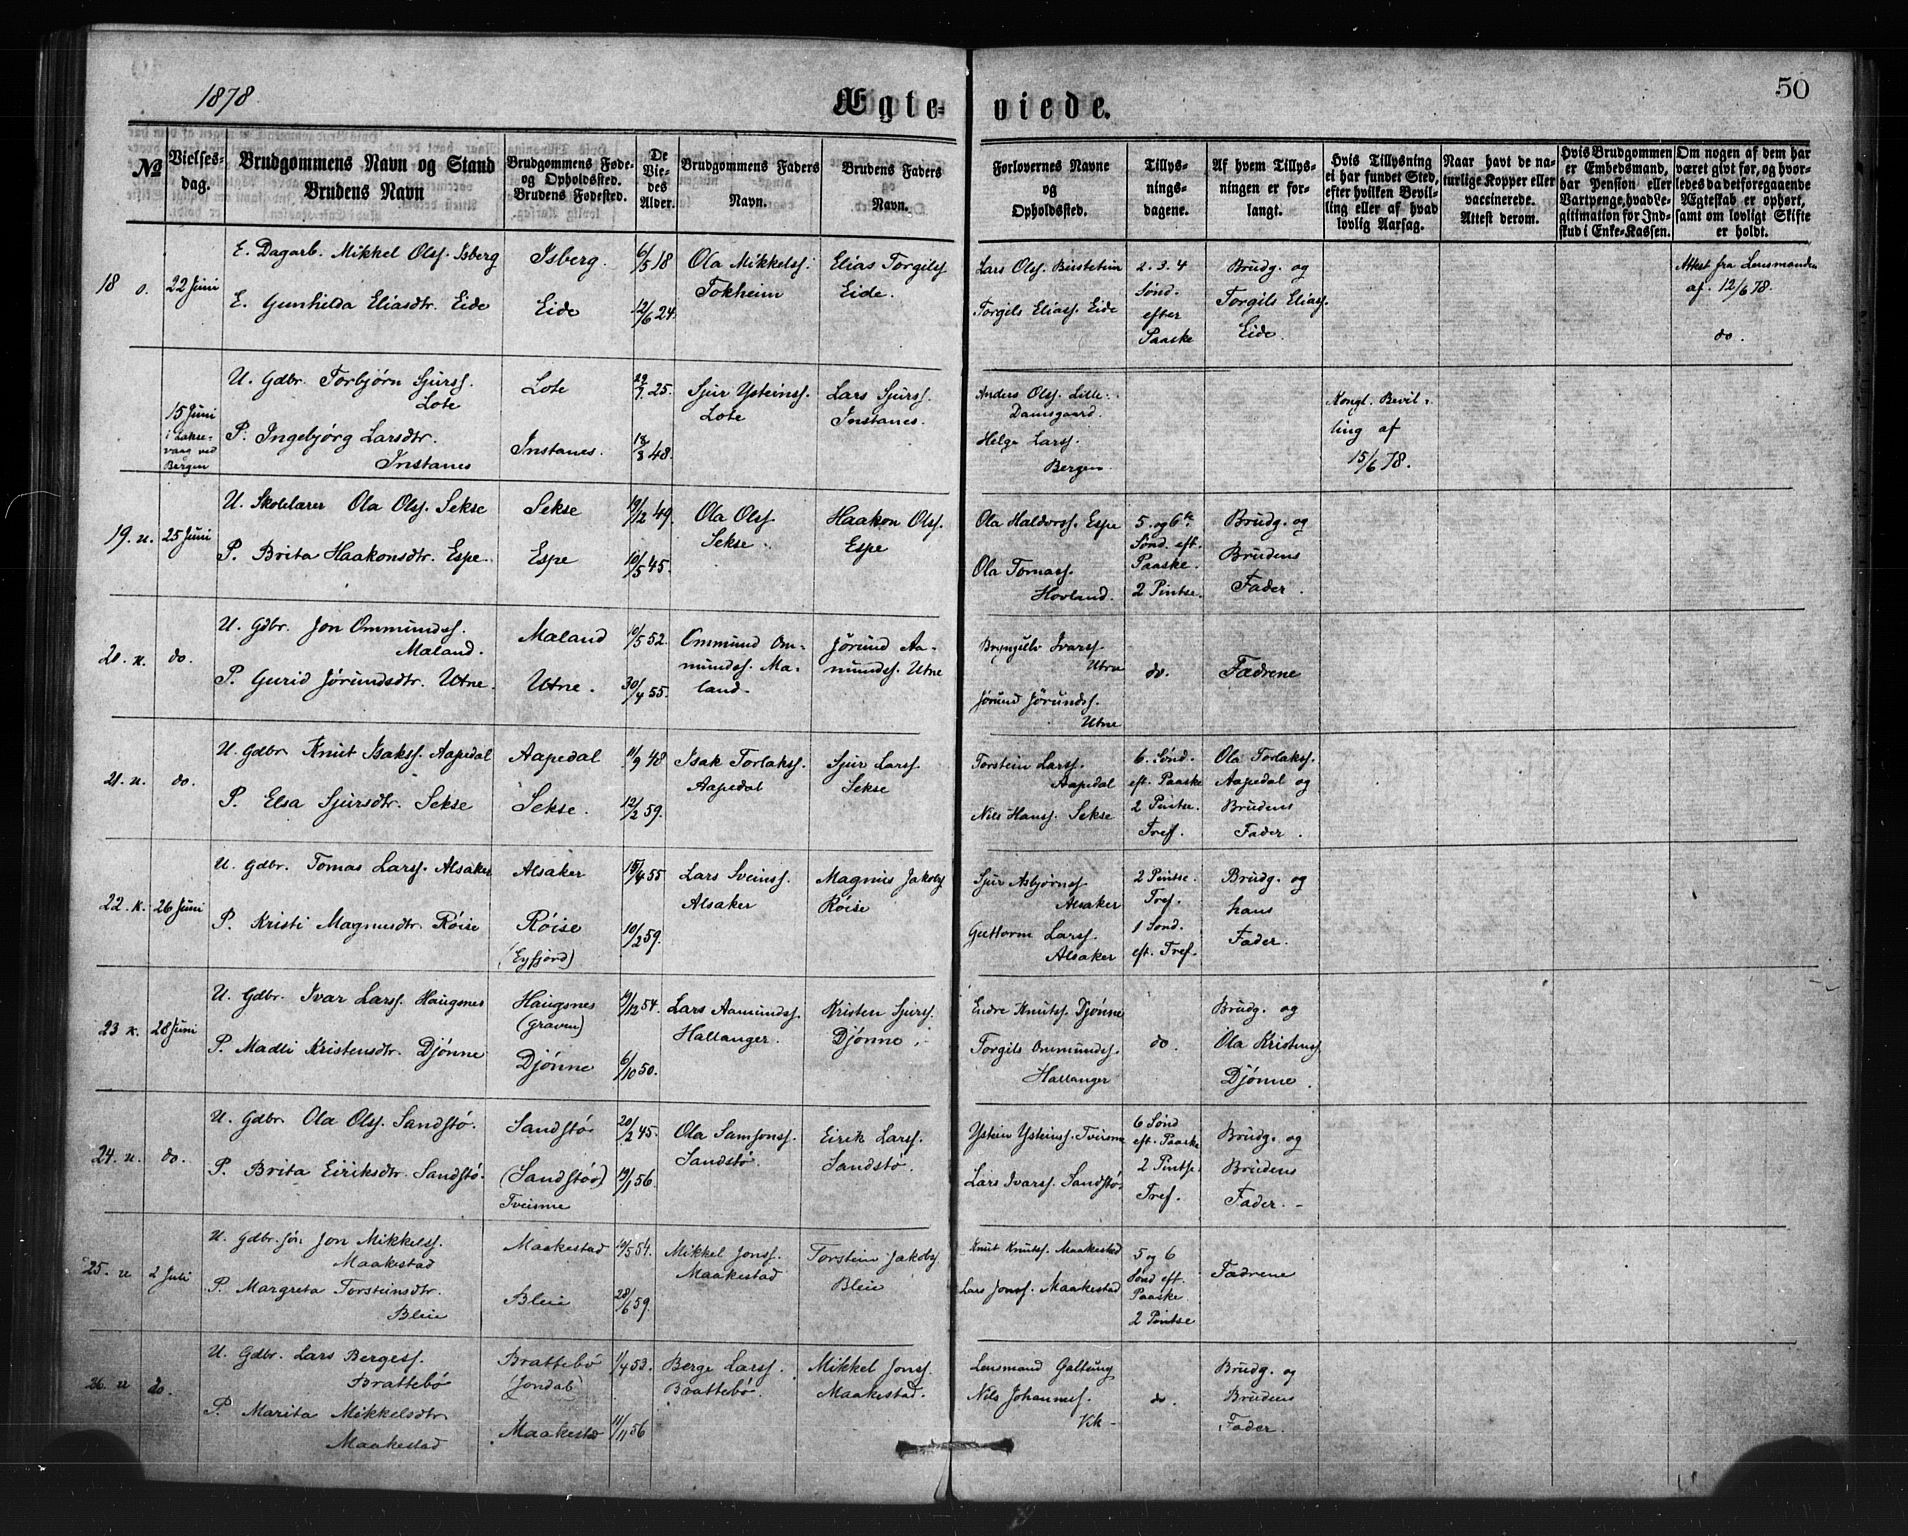 1878
Ægte-
viede.
50
№
Vielses-
dag.
Brudgommens Navn og Stand
Brudens Navn
Brudgommens Føde-
og Opholdssted.
Brudens Fødested.
De
Vie-
des
Alder.
Brudgommens Faders
Navn.
Brudens Faders
og
Navn.
Forlovernes Navne
og
Opholdssted.
Tillys-
nings-
dagene.
Af hvem Tillys-
ningen er for-
langt.
Hvis Tillysning
ei har fundet Sted,
efter hvilken Bevil-
ling eller af hvad
lovlig Aarsag.
Naar havt de na-
turlige Kopper eller
vaccinerede.
Attest derom.
Hvis Brudgommen
er Embedsmand,
har Pension eller
Vartpenge, hvad Le-
gitimation for Ind-
skud i Enke-Kassen.
Om nogen af dem har
været givt før, og hvor-
ledes da det foregaaende
Ægteskab er ophørt,
samt om lovligt Skifte
er holdt.
18 o.
22 Juni
E. Dagarb. Mikkel Olss. Isberg
E. Gunhilda Eliasdtr. Eide
Isberg.
Eide
6/5 18
12/6 24.
Ola Mikkelss.
Tokheim
Elias Torgilss
Eide.
Lars Olss. Birstein
Torgils Eliass. Eide
2. 3. 4
Sønd.
efter
Paaske
Brudg. og
Torgils Eliass.
Eide.
Attest fra Lensmanden
af. 12/6 78.
do.
15 Juni
i Lakse-
vaag ved
Bergen
U. Gdbr. Torbjørn Sjurss.
Lote
P. Ingebjørg Larsdtr.
Instanes
Lote
Instanes.
29/7 25.
18/3 48.
Sjur Ysteinss.
Lote
Lars Sjurss.
Instanes.
Anders Olss. Lille-
Damsgaard.
Helge Larss.
Bergen.
Kongl. Bevil-
ling af
15/6 78.
19. u.
25 Juni
U. Skolelærer Ola Olss. Sekse
P. Brita Haakonsdtr. Espe.
Sekse
Espe
19/12 49.
10/5 45.
Ola Olss
Sekse
Haakon Olss.
Espe
Ola Haldorss. Espe
Ola Tomass.
Hovland.
5. og 6te
Sønd. eft.
Paaske.
2 Pintse.
Brudg. og
Brudens
Fader.
20. k.
do.
U. Gdbr. Jon Ommundss.
Maland.
P. Gurid Jørundsdtr. Utne.
Maland
Utne.
10/5 52.
30/4 55.
Ommund Om-
mundss. Ma-
land.
Jørund Aa-
mundss. Utne
Bryngilv Ivarss.
Utne
Jørund Jørundss.
Utne
do.
Fædrene
21. u.
do.
U. Gdbr Knut Isakss. Aapedal
P. Elsa Sjursdtr. Sekse
Aapedal
Sekse.
11/9 48
12/2 59.
Isak Torlakss.
Aapedal
Sjur Larss.
Sekse
Torstein Larss.
Aapedal
Nils Hanss. Sekse
6. Sønd.
eft. Paaske
2 Pintse.
Tref.
Ola Torlakss.
Aapedal og
Brudens
Fader.
22. k.
26 Juni
U. Gdbr. Tomas Larss. Alsaker
P. Kristi Magnusdtr. Røise
Alsaker
Røise
(Eyfjord)
15/4 55
10/2 59.
Lars Sveinss.
Alsaker
Magnus Jakobss
Røise
Sjur Asbjørnss
Alsaker
Guttorm Larss.
Alsaker
2 Pintse.
Tref.
1 Sønd.
eft. Tref.
Brudg. og
hans
Fader.
23 k.
28 Juni
U. Gdbr. Ivar Larss. Haugsnes
P. Madli Kristensdtr. Djønne
Haugsnes
(Graven)
Djønne
19/12 54.
6/10 50.
Lars Aamundss.
Hallanger.
Kristen Sjurss.
Djønne
Endre Knutss. Djønne
Torgils Ommundss.
Hallanger
do.
Brudg. og
Ola Kristenss.
Djønne.
24. u.
do.
U. Gdbr. Ola Olss. Sandstø.
P. Brita Eiriksdtr. Sandstø.
Sandstø
(Sandstø)
Tveisme
20/2 45.
19/1 56.
Ola Samsonss.
Sandstø.
Eirik Larss.
Sandstø.
Ystein Ysteinss. Tveisme
Lars Ivarss. Sandstø
6 Sønd
eft. Paaske
2 Pintse.
Tref.
Brudg. og
Brudens
Fader.
25. u
2 Juli
U. Gdbr. søn Jon Mikkelss.
Maakestad
P. Margreta Torsteinsdtr.
Bleie
Maakestad
Bleie
19/5 54.
28/6 59.
Mikkel Jonss.
Maakestad
Torstein Jakobss
Bleie
Knut Knutss. Maakestad
Lars Jonss. Maakestad
5 og 6
Sønd eft.
Paaske
2 Pintse
Fædrene
26. u
do.
U. Gdbr. Lars Bergess.
Brattebø
P. Marita Mikkelsdtr
Maakestad
Brattebø
(Jondal)
Maakestad
1/4 53.
11/11 56
Berge Larss.
Brattebø.
Mikkel Jonss.
Maakestad.
Lensmand Galtung
Nils Johanness.
Vik
do.
Brudg. og
Brudens
Fader.